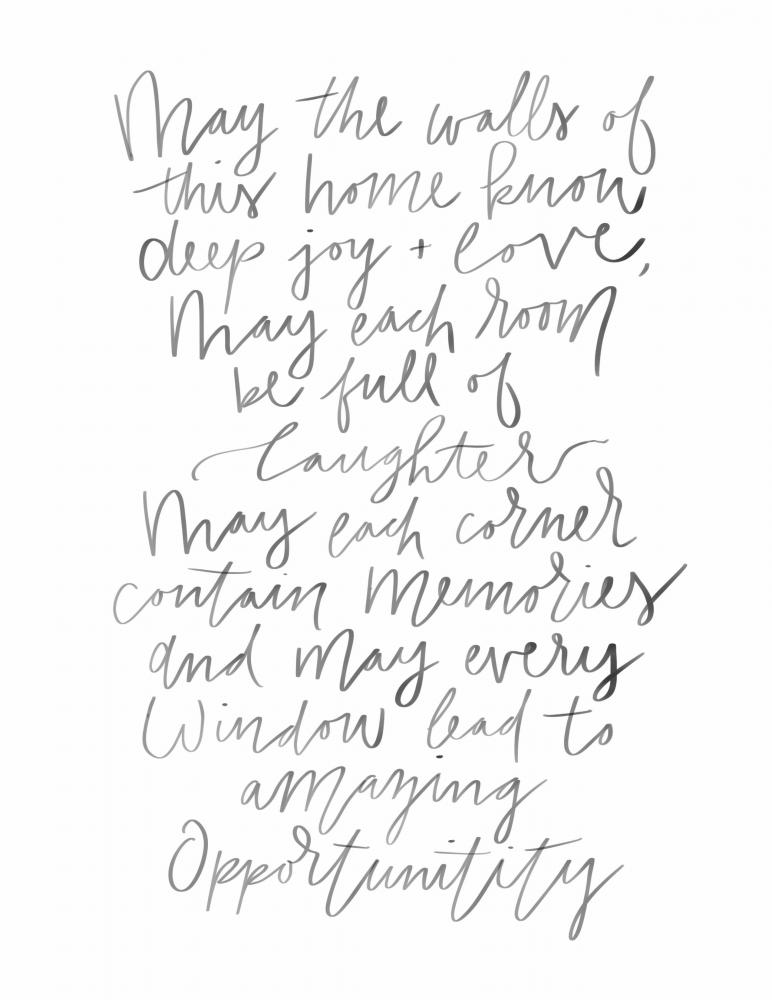 May the walls of
this home know
deep joy + love,
May each room
be full of
laughter
May each corner
contain memories
and may every
Window lead to
amazing
Opportunitity